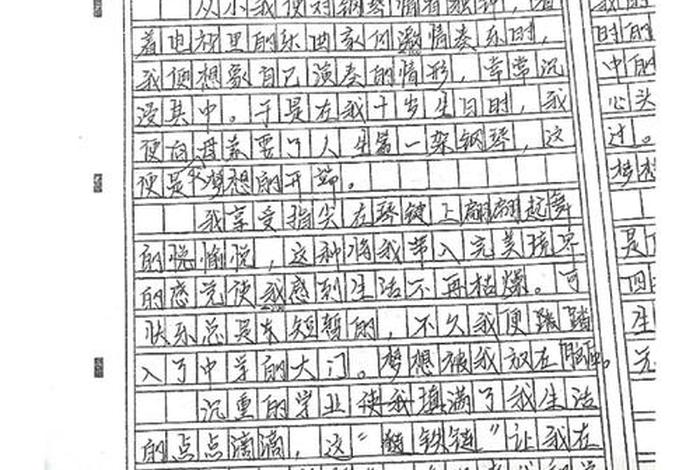 从小我便对钢琴情有独钟，看
着电视里的乐曲家们激情奏乐时，
我便想象自己演奏的情形，常常沉
没其中。于是在我十岁生日时，我
便向母亲要了人生第一架钢琴，这
便是梦想的开端。
我享受指尖在琴键上翩翩起舞
的愉悦，这种将我带入完美境界
的感觉使我感到生活不再枯燥。可
快乐总是短暂的，不久我便踏
入了中学的大门。梦想被我放在
沉重的学业填满了我生活
的点点滴滴，这“铁链”让我在
我的
时的
中的
心头
过。
梦想
是
四
生